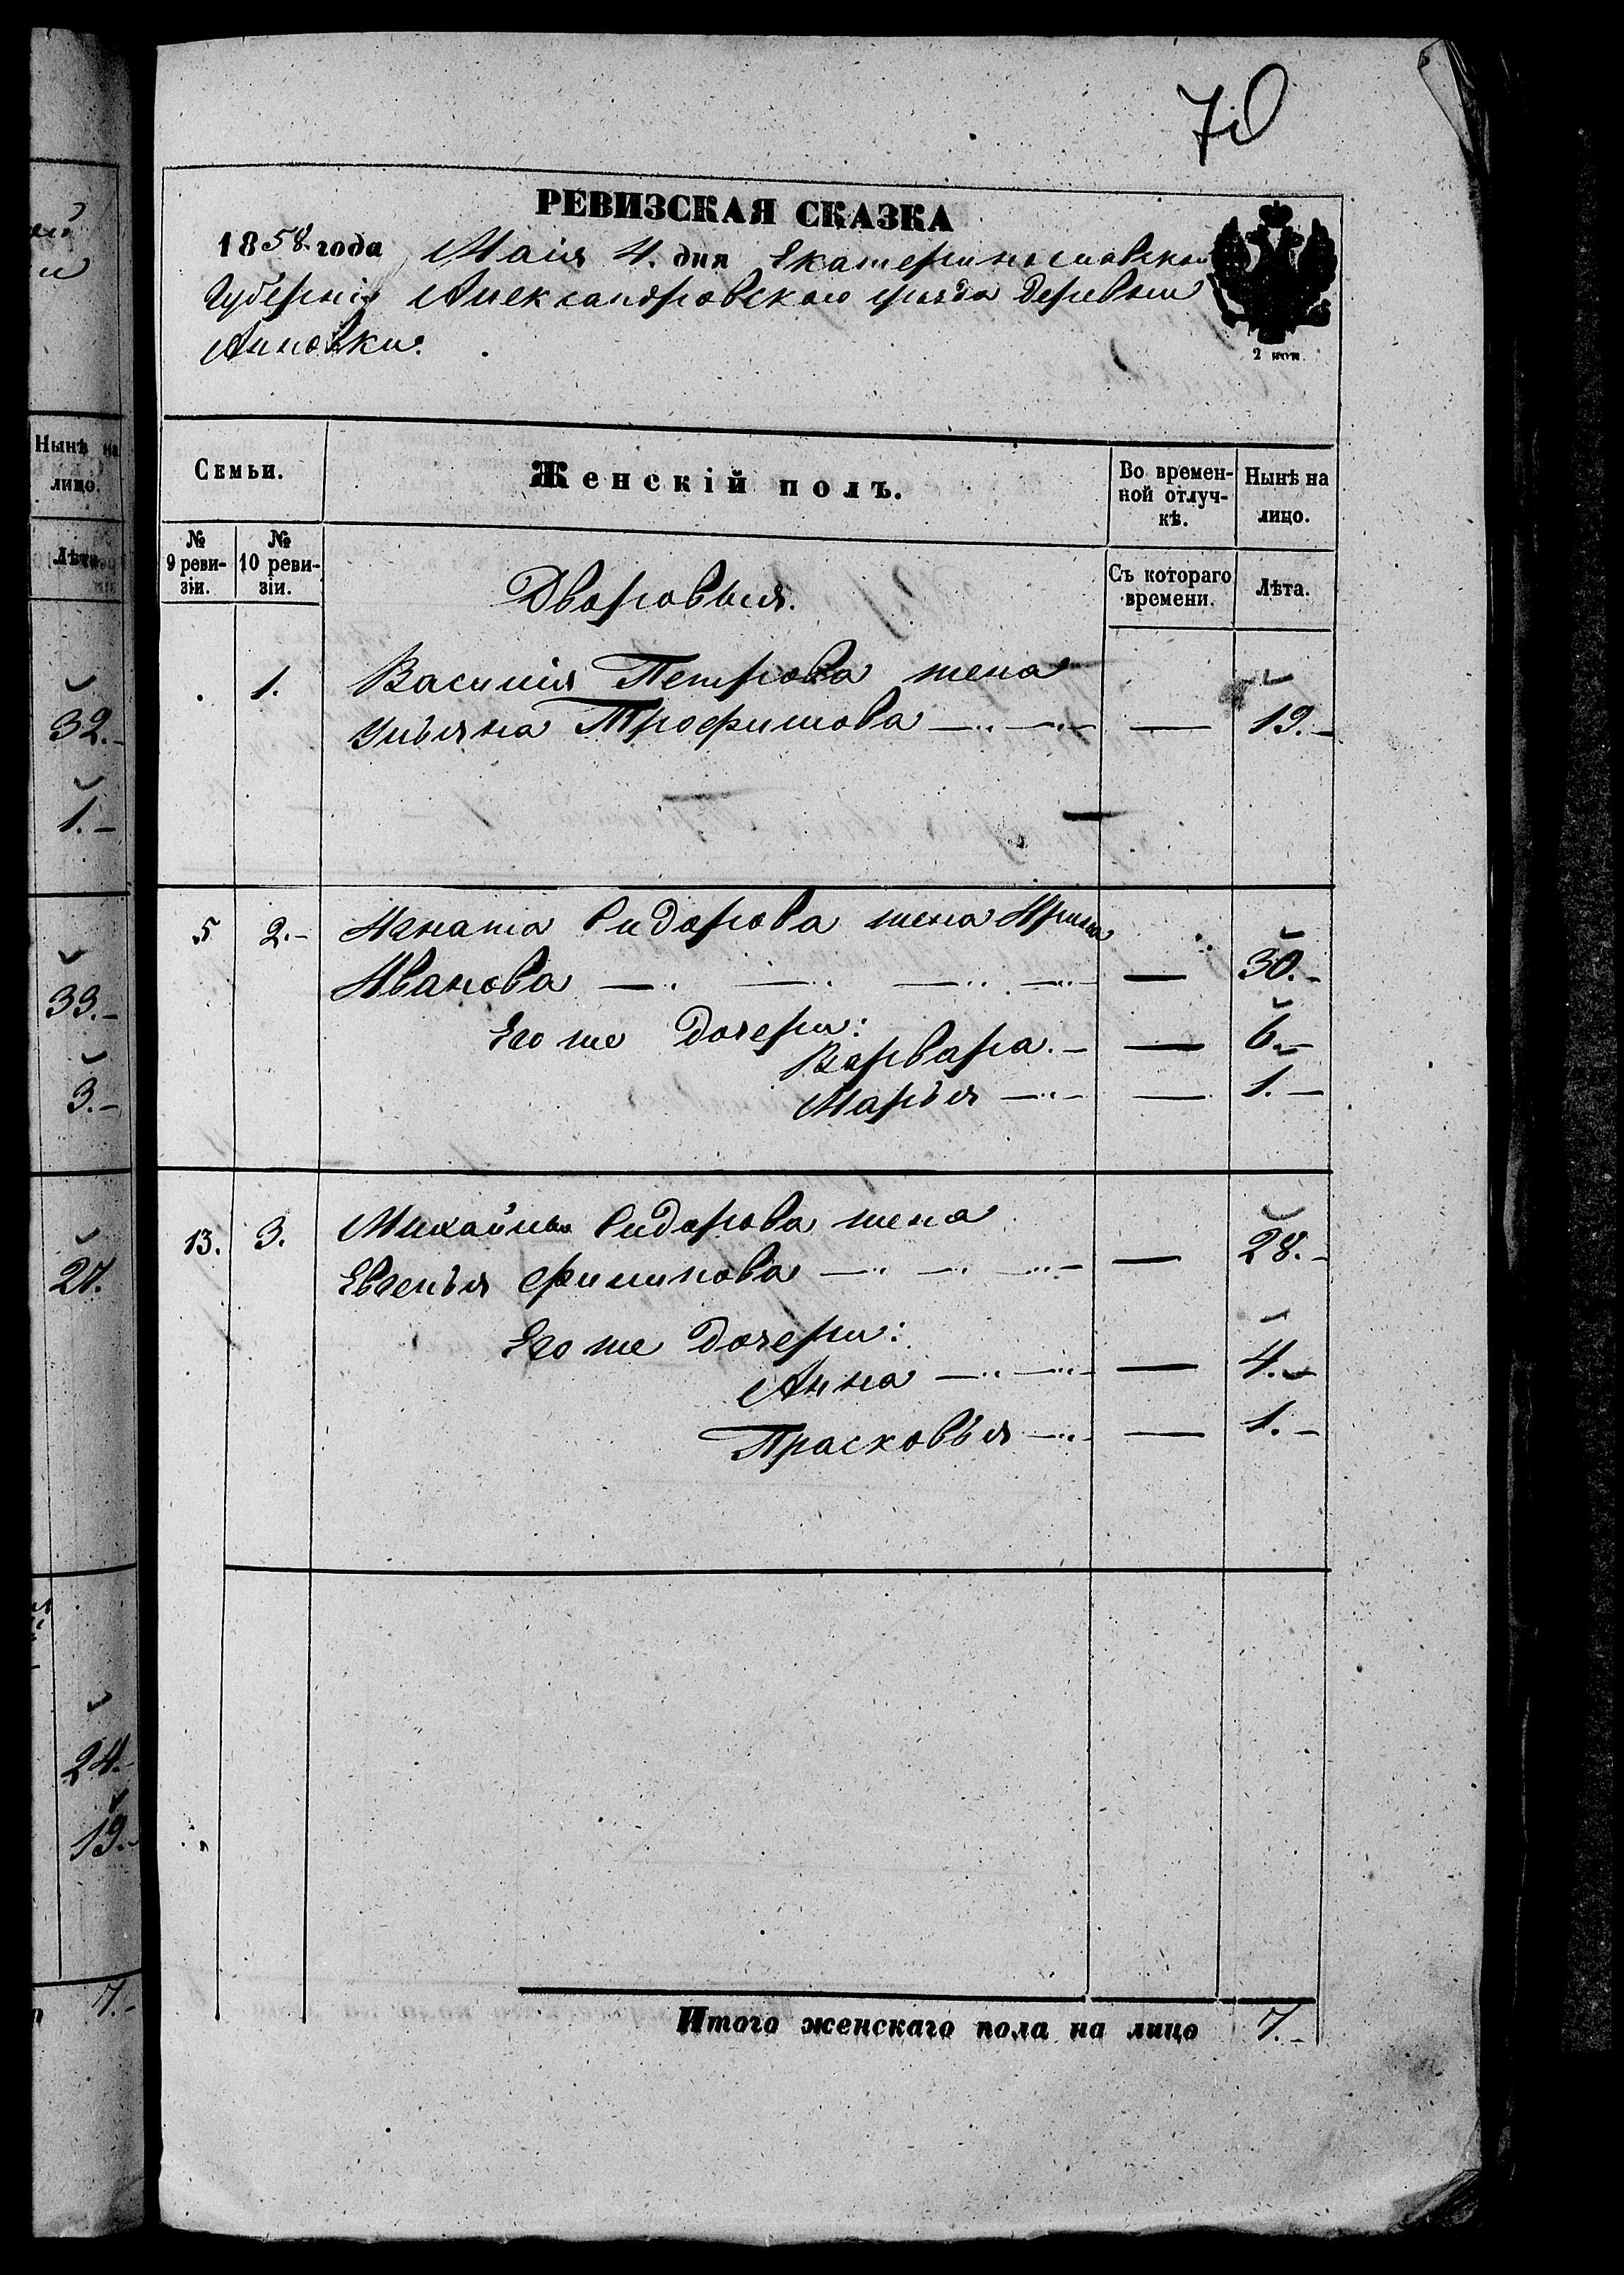 70
РЕВИЗСКАЯ СКАЗКА
1858. года Маія 4. дня Екатеринославской
Губерніи Александровского уѣзда деревни
Анновки.
2 коп.
Семьи.
Женскій полъ.
Во времен-
ной отлуч-
кѣ.
Нынѣ на
лицо.
№
9 реви-
зіи.
№
10 реви-
зіи.
Съ котораго
времени.
Лѣта.
Дворовыя.
1. Василія Петрова жена
Ульяна Трофимова — — 19.-
5 2.- Игната Сидорова жена Ирина
Иванова — — — — 30.-
Его же дочери:
Варвара.- — 6.-
Марья — — 1.-
13. 3. Михайлы Сидорова жена
Евгенья Филипова — — — — 28.-
Его же дочери:
Анна — — — 4.-
Прасковья — — 1.-
Итого женскаго пола на лицо 7.-
Нынѣ на
лицо.
Лѣта.
32.-
1.-
33.-
3.-
27.
24.-
19.-
7.-